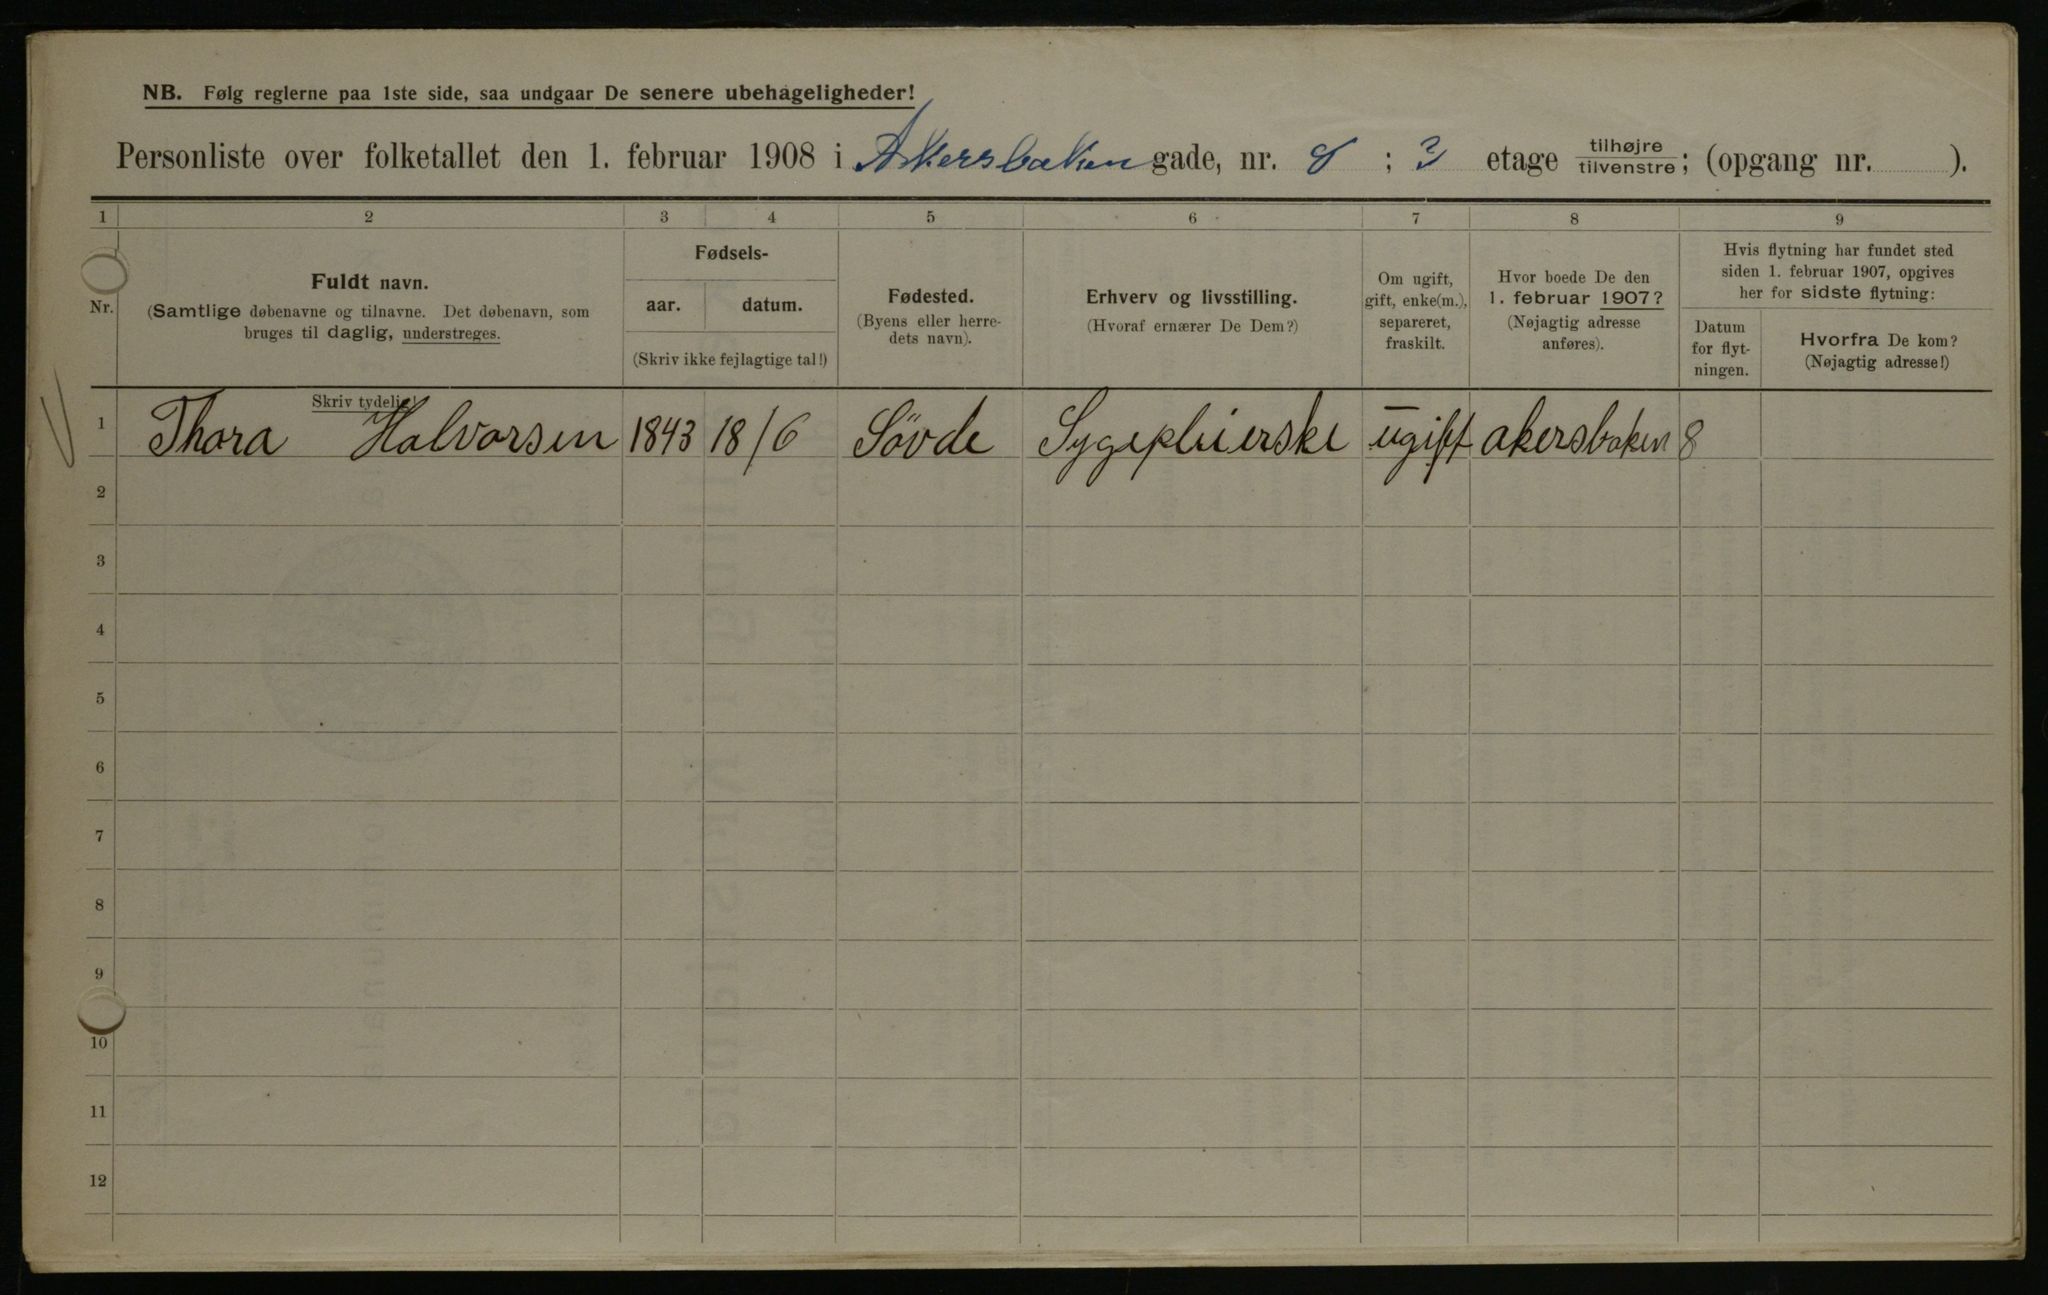 NB. Følg reglerne paa 1ste side, saa undgaar De senere ubehageligheder!
Personliste over folketallet den 1. februar 1908 i Akersbakken gade, nr. 8 ; 3 etage tilhøjre tilvenstre ; (opgang nr. ).
1 2 3 4 5 6 7 8 9
Nr.
Fuldt navn.
(Samtlige døbenavne og tilnavne. Det døbenavn, som
bruges til daglig, understreges.
Skriv tydelig!
Fødsels-
aar. datum.
(Skriv ikke fejlagtige tal!)
Fødested.
(Byens eller herre-
dets navn).
Erhverv og livsstilling.
(Hvoraf ernærer De Dem?)
Om ugift,
gift, enke(m.),
separeret,
fraskilt.
Hvor boede De den
1. februar 1907?
(Nøjagtig adresse
anføres).
Hvis flytning har fundet sted
siden 1. februar 1907, opgives
her for sidste flytning:
Datum
for flyt-
ningen.
Hvorfra De kom?
(Nøjagtig adresse!)
1 Thora Halvorsen 1843 18/6 Søvde Sygepleierske ugift akersbaken 8
2
3
4
5
6
7
8
9
10
11
12